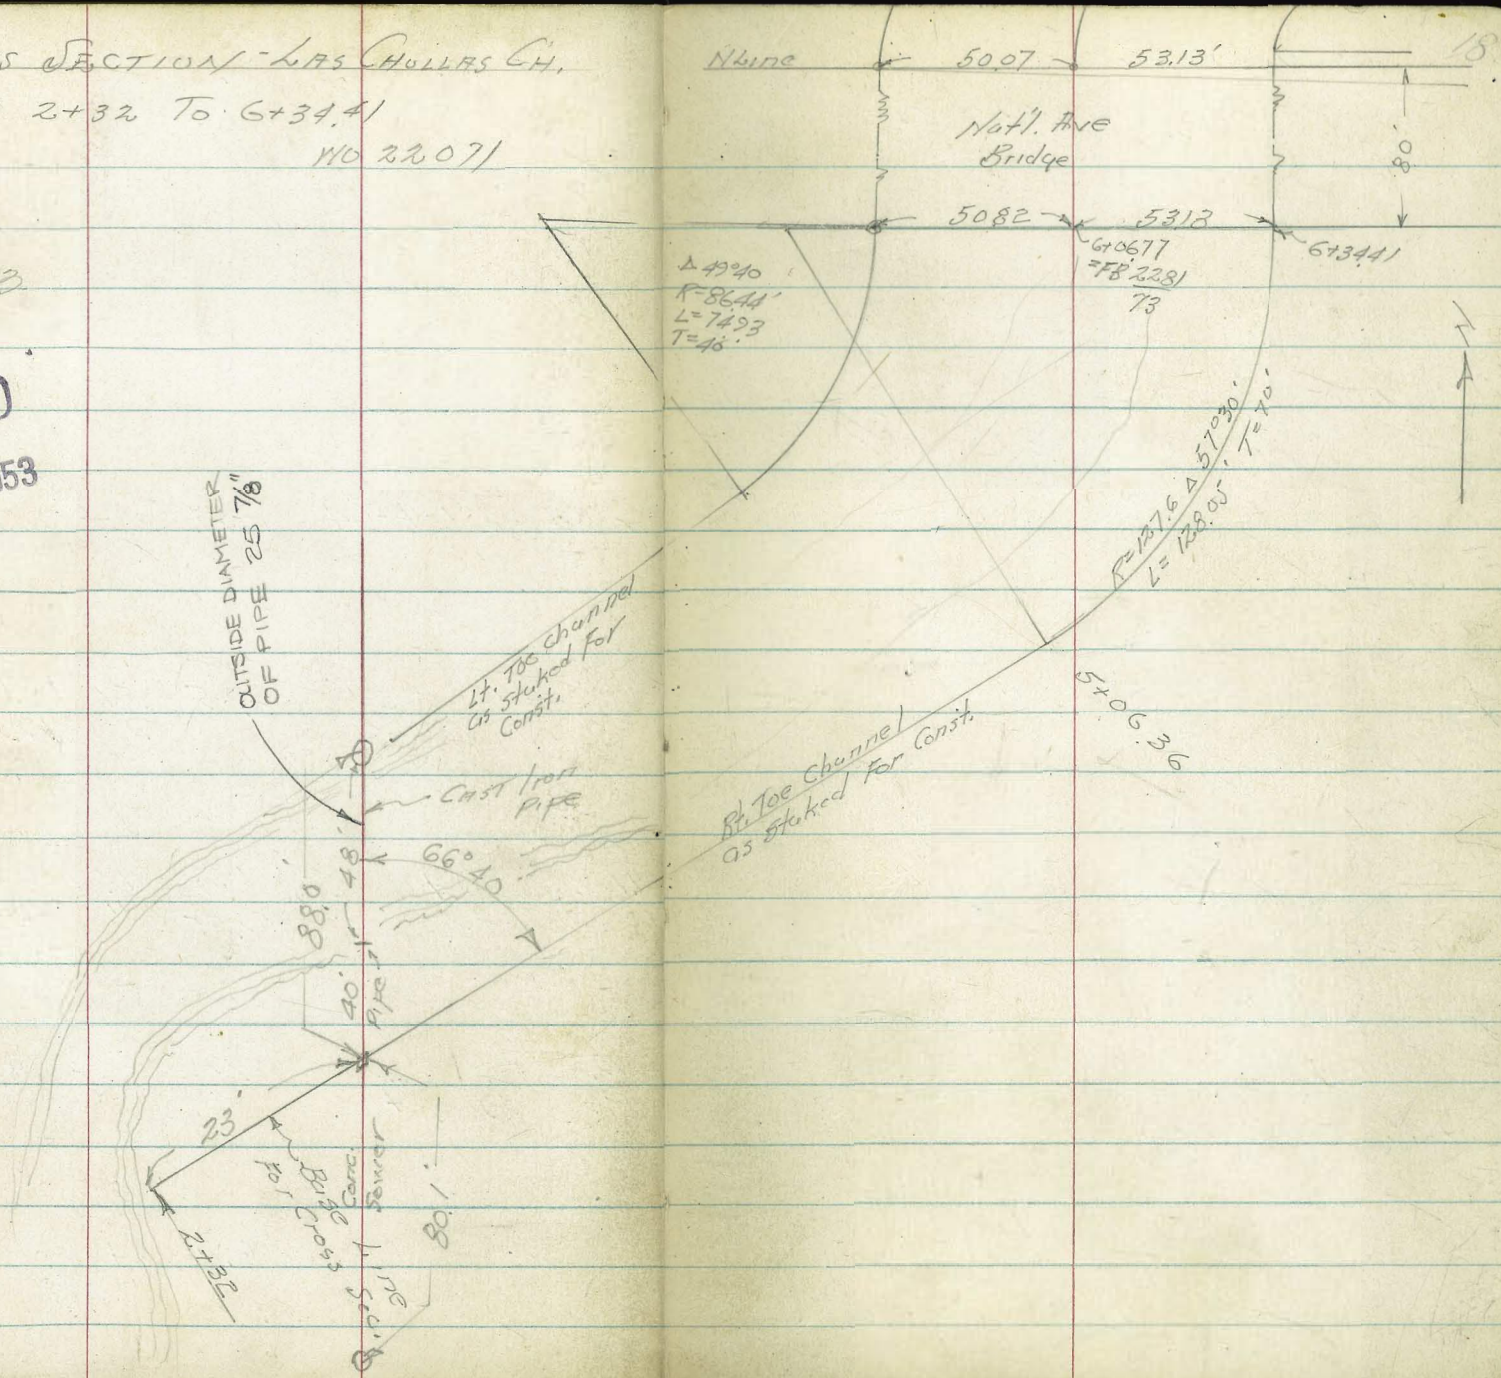 S SECTION - LAS CHOLLAS CH.
2+32 To 6+34.41
WO 22071
53
OUTSIDE DIAMETER
OF PIPE 25 7/8"
Lt. Toe Channel
as Staked For
Const.
Cast Iron
Pipe
66°40
88.0
40'
48'
Pipe
23'
2+32
Base Line
For Cross Sec.
Conc.
Sewer
80.1'
18
N Line
50.07
53.13'
Nat'l. Ave
Bridge
80'
50.82
53.13
6+06.77
=FB 2281
73
6+34.41
Δ 49°40
R=86.44'
L=74.93
T=40'
N
R=127.6 Δ 57°30'
L=128.05' T=70'
5+06.36
Rt. Toe Channel
as Staked For Const.